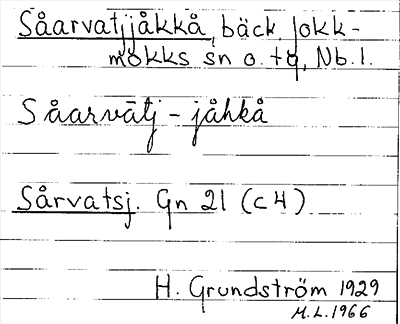 Såarvatjjåkkå, bäck, Jokk-
mokks sn o. tg, Nb. l.
Såarvătj - jåhkå
Sårvatsj. Gn 21 (c4)
H. Grundström 1929
M.L. 1966